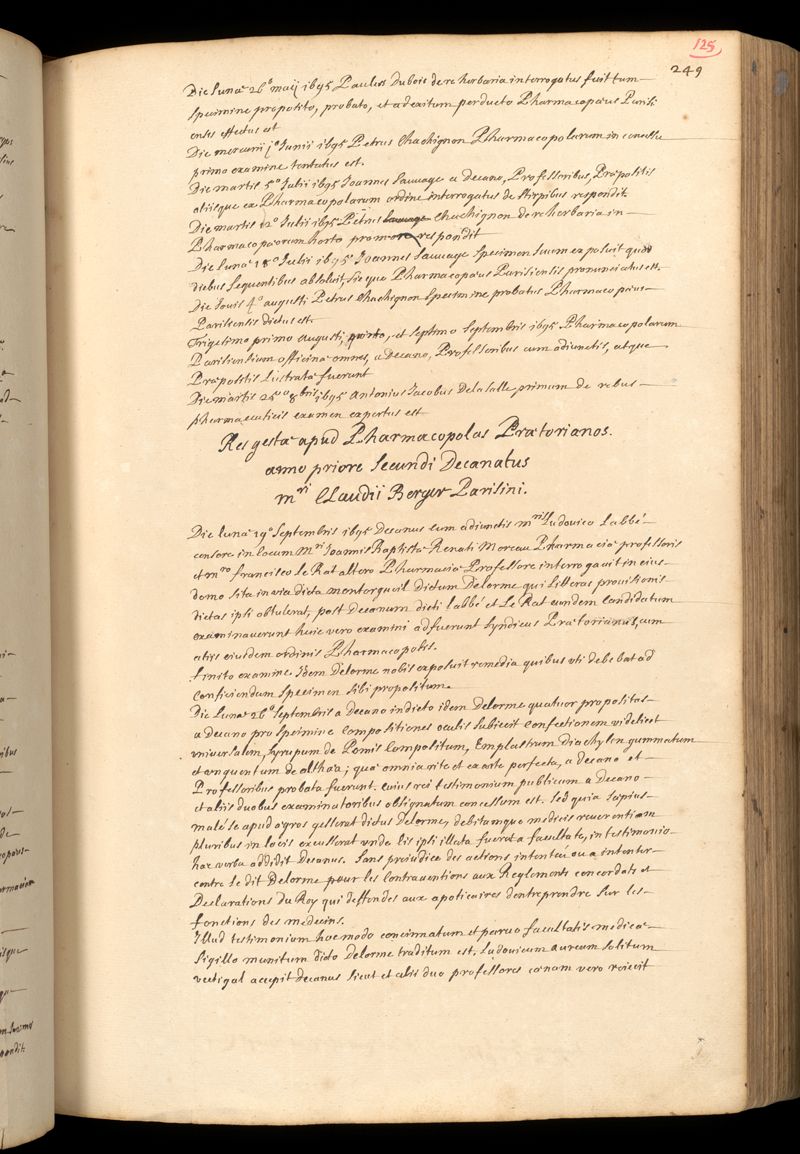 125
249
Die lunæ 26ª maij 1695 Paulus Dubois de re herbaria interrogatus fuit tum
specimine proposito, probato, et ad exitum perducto Pharmacopæus Parisi
ensis effectus est
Die mercurii jª Junii 1695 Petrus Chachignon Pharmacopolarum in consessu
primo examine tentatus est.
Die martis 5º Julii 1695 Joannes Sauvage a Decano, Professoribus, Præpositis
aliisque ex Pharmacopolarum ordine interrogatus de stirpibus respondit
Die martis 12º Julii 1695 Petrus Sauvage Chachignon de re herbaria in
Pharmacopæorum horto respondit
Die lunæ 18º Julii 1695 Joannes Sauvage specimen suum exposuit quod
diebus sequentibus absolvit, sicque Pharmacopæus Parisiensis pronunciatus est.
Die Jovis 4º augusti Petrus Chachignon specimine probatus Pharmacopæus
Parisiensis dictus est.
Trigesimo primo augusti, quinto, et septimo septembris 1695 Pharmacopolarum
Parisiensium officinæ omnes, a Decano, Professoribus cum adiunctis, atque
Præpositis Lustratæ fuerunt
Die martis 25ª 8bris 1695 Antonius Jacobus Delasalle primum de rebus
pharmaceuticis examen expertus est
Res gestæ apud Pharmacopolas Prætorianos.
anno priore secundi Decanatus
mri Claudii Berger Parisini.
Die lunæ 19º Septembris 1695 Decanus cum adiunctis mris Ludovico Labbé
censore in locum Mri Joannis Baptistæ Renati Moreau Pharmaciæ professoris
et mro francisco Le Rat altero Pharmaciæ Professore interrogavit in eius
domo sita in via dicta montorgueil dictum Delorme qui litteras provisionis
dictas ipsi obtulerat, post Decanum dicti labbé et Le Rat eundem candidatum
examinaverunt huic vero examini adfuerunt syndicus Prætorianus, cum
aliis eiusdem ordinis Pharmacopolis.
finito examine Idem Delorme nobis exposuit remedia quibus uti debebat ad
conficiendum specimen sibi propositum.
Die Lunæ 26ª Septembris a Decano indicto idem Delorme quatuor propositas
a decano pro specimine compositiones oculis subiecit confectionem videlicet
universalem, syrupum de Pomis compositum, Emplastrum Diachylon gummatum
et unguentum de althæa; quæ omnia rite et ex arte perfecta, a Decano et
Professoribus probata fuerunt. cuius rei testimonium publicum a Decano
et aliis duobus examinatoribus obsignatum concessum est. sed quia sæpius
malè se apud ægros gesserat dictus Delorme, debitamque medicis reverentiam
pluribus in locis excusserat unde lis ipsi illata fuerat a facultate, in testimonio
hæc verba addidit Decanus. sans prejudice des actions intentées ou a intenter
contre le dit Delorme pour les contraventions aux Reglements concordats et
Declarations du Roy qui deffendes aux apoticaires d'entreprendre sur les
fonctions des medecins.
Illud testimonium hoc modo concinnatum et parvo facultatis medicæ
sigillo munitum dicto Delorme traditum est. Ludovicum aureum solitum
vectigal accepit decanus sicut et alii duo professores cœnam vero reiecit